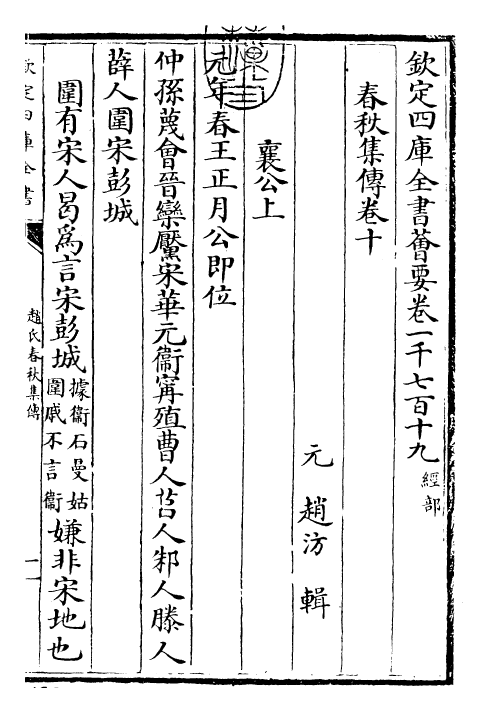 欽定四庫全書薈要卷一千七百十九 經部
春秋集傳卷十
元 趙汸 輯
襄公上
元年春王正月公即位
仲孫蔑會晉欒黶宋華元衞寗殖曹人莒人邾人滕人
薛人圍宋彭城
圍有宋人曷爲言宋彭城據衞石曼姑圍戚不言衞嫌非宋地也
欽定四庫全書
趙氏春秋集傳
一